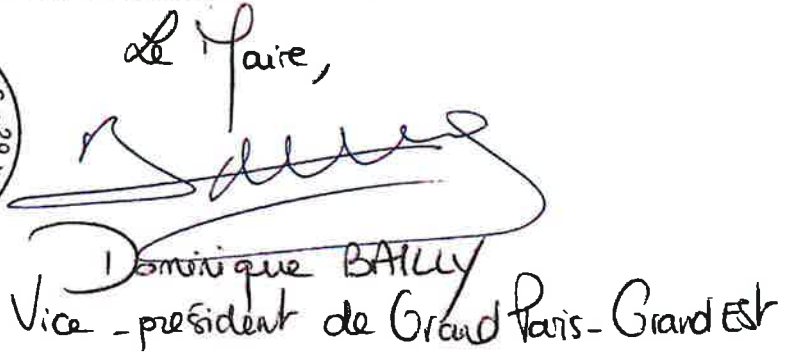 Le Maire,
Dominique BAILLY
Vice-président de Grand Paris-Grand Est